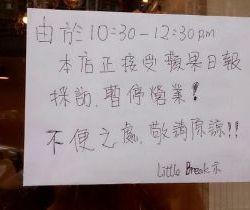 由於10:30-12:30pm
本店正接受蘋果日報
採訪,暫停營業!
不便之處,敬請原諒!!
Little Break 示